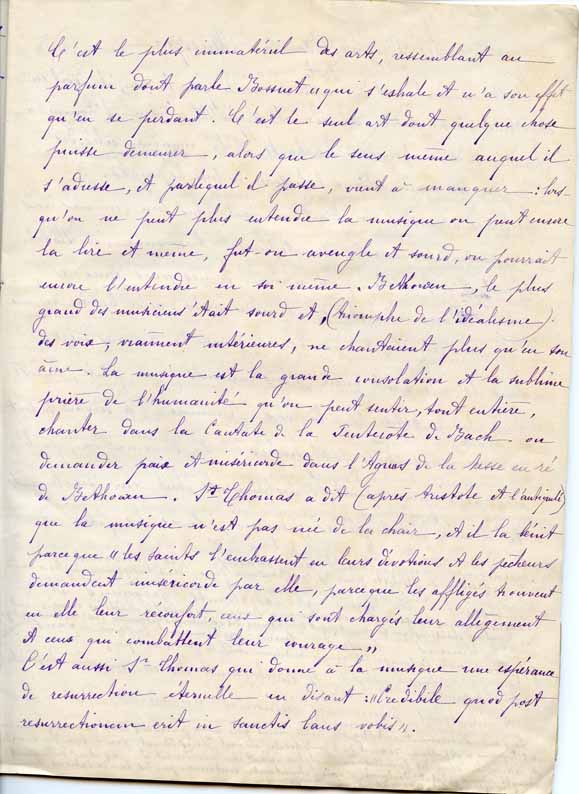 C'est le plus immatériel des arts, ressemblant au
parfum dont parle Bossuet "qui s'exhale et n'a son effet
qu'en se perdant. C'est le seul art dont quelque chose
puisse demeurer, alors que le sens même auquel il
s'adresse, et par lequel il passe, vient à manquer : lors-
qu'on ne peut plus entendre la musique on peut encore
la lire et même, fut-on aveugle et sourd, on pourrait
encore l'entendre en soi même. Bethowen, le plus
grand des musiciens était sourd et, (triomphe de l'idéalisme)
des voix, vraiment intérieures, ne chantaient plus qu'en son
âme. La musique est la grande consolation et la sublime
prière de l'humanité qu'on peut sentir, tout entière,
chanter dans la Cantate de la Pentecôte de Bach ou
demander paix et miséricorde dans l'Agnus de la Messe en ré
de Bethowen. St Thomas a dit (après Aristote et l'antiquité)
que la musique n'est pas née de la chair, et il la bénit
parce que "les saints l'embrassent en leurs dévotions et les pécheurs
demandent miséricorde par elle, parce que les affligés trouvent
en elle leur réconfort, ceux qui sont chargés leur allègement
et ceux qui combattent leur courage"
C'est aussi St Thomas qui donne à la musique une espérance
de resurrection éternelle en disant : "Credibile quod post
resurrectionem erit in sanctis laus vobis".